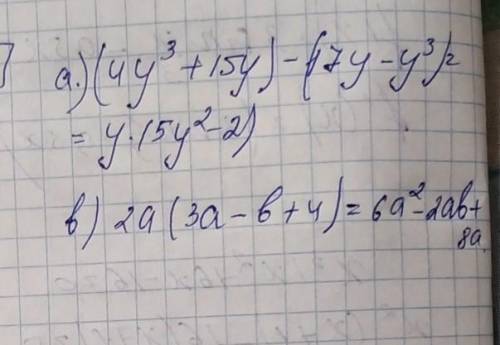 а.) (4y³ + 15y) - (17y - y³) =
= y · (5y² - 2)
в) 2a (3a - b + 4) = 6a² - 2ab +
8a